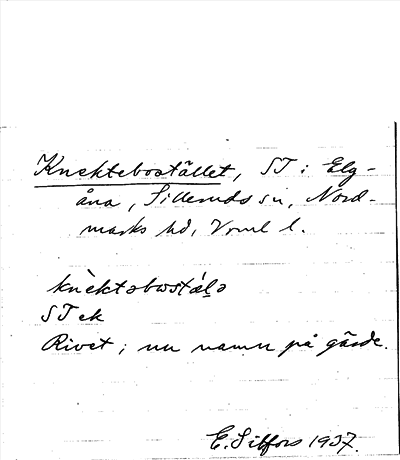 Knektebostället, ST i Elg-
åna, Silleruds sn, Nord-
marks hd, Vrml l.
knèktəbωstälə
STek
Rivet; nu namn på gärde.
E. Silfors 1937.